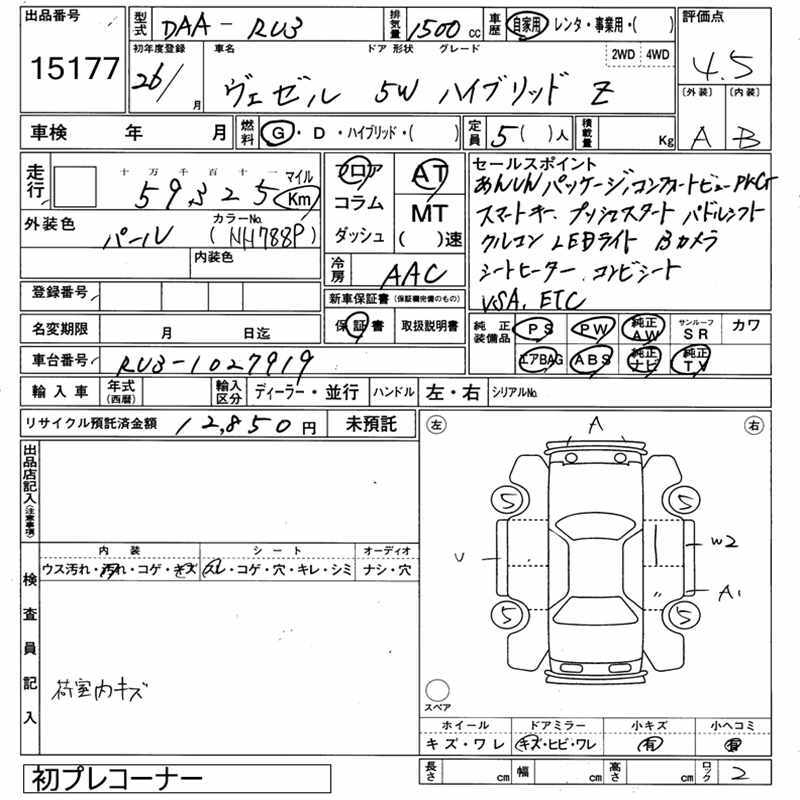 出品番号
15177
型式 DAA-RU3
排気量 1500 cc
車歴 自家用 レンタ・事業用・( )
評価点
4.5
初年度登録 26/ 月
車名 ドア 形状 グレード
2WD 4WD
ヴェゼル 5W ハイブリッド Z
〔外装〕 〔内装〕
A B
車検 年 月
燃料 G・D・ハイブリッド・( )
定員 5( )人
積載量 Kg
走行 十 万 千 百 十 一 マイル
59,325 Km
フロア
コラム
ダッシュ
AT
MT
( )速
セールスポイント
あんしんパッケージ,コンフォートビューPKG
スマートキー プッシュスタート パドルシフト
クルコン LEDライト Bカメラ
シートヒーター コンビシート
VSA, ETC
外装色 パール
カラーNo.
(NH788P)
内装色
冷房 AAC
登録番号
新車保証書 (保証欄完備のもの)
保証書 取扱説明書
名変期限 月 日迄
純正装備品 PS PW 純正AW サンルーフSR カワ
エアBAG ABS 純正ナビ 純正TV
車台番号 RU3-1027919
輸入車 年式(西暦) 輸入区分 ディーラー・並行 ハンドル 左・右 シリアルNo.
リサイクル預託済金額 12,850 円 未預託
左 右
A
出品店記入(注意事項)
内装 シート オーディオ
ウス汚れ・汚れ・コゲ・キズ スレ・コゲ・穴・キレ・シミ ナシ・穴
検査員記入
荷室内キズ
5 5
U W2
A1
5 5
スペア
ホイール ドアミラー 小キズ 小ヘコミ
キズ・ワレ キズ・ヒビ・ワレ 有 有
長さ cm 幅 cm 高さ cm ロック 2
初プレコーナー